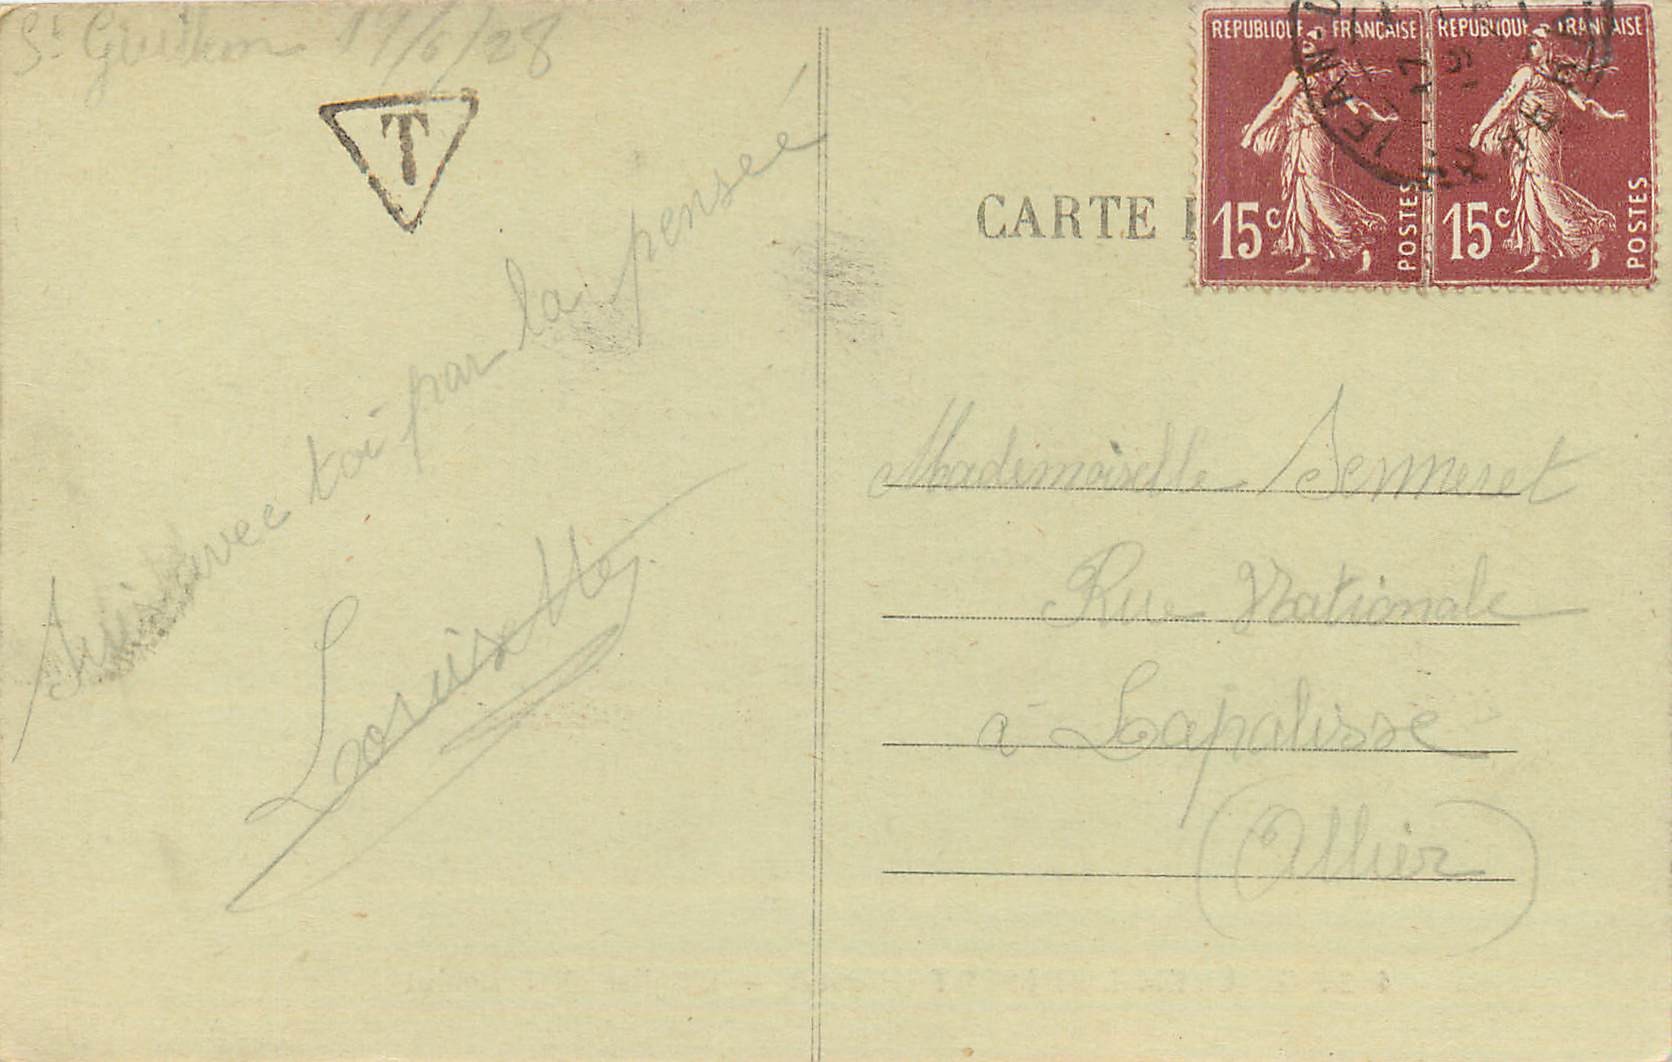 St Guilhem 19/6/28
T
Suis avec toi par la pensée
Louisette
CARTE
REPUBLIQUE FRANCAISE
15c
POSTES
REPUBLIQUE FRANCAISE
15c
POSTES
Mademoiselle Sermeret
Rue Nationale
à Lapalisse
(Allier)